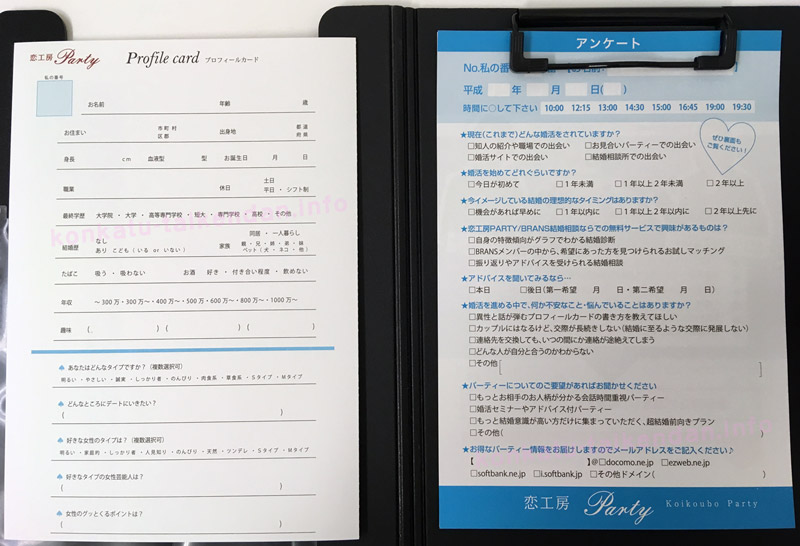 恋工房 Party Profile card プロフィールカード
私の番号
お名前 年齢 歳
お住まい 市町村 区郡 出身地 都道 府県
身長 cm 血液型 型 お誕生日 月 日
職業 休日 土日 平日・シフト制
最終学歴 大学院・大学・高等専門学校・短大・専門学校・高校・その他
結婚歴 なし あり こども(いる or いない) 家族 同居・一人暮らし 親・兄・姉・弟・妹 ペット(犬・ネコ・他)
たばこ 吸う・吸わない お酒 好き・付き合い程度・飲めない
年収 〜300万・300万〜・400万〜・500万・600万〜・800万〜・1000万〜
趣味 ( ) ( ) ( )
♠ あなたはどんなタイプですか?(複数選択可)
明るい・やさしい・誠実・しっかり者・のんびり・肉食系・草食系・Sタイプ・Mタイプ
♠ どんなところにデートにいきたい?
( )
♠ 好きな女性のタイプは?(複数選択可)
明るい・家庭的・しっかり者・人見知り・のんびり・天然・ツンデレ・Sタイプ・Mタイプ
♠ 好きなタイプの女性芸能人は?
( )
♠ 女性のグッとくるポイントは?
( )
アンケート
No.私の番
平成 年 月 日( )
時間に○して下さい 10:00 12:15 13:00 14:30 15:00 16:45 19:00 19:30
★現在(これまで)どんな婚活をされていますか?
□知人の紹介や職場での出会い □お見合いパーティーでの出会い
□婚活サイトでの出会い □結婚相談所での出会い
ぜひ裏面も
ご覧ください!
★婚活を始めてどれぐらいですか?
□今日が初めて □1年未満 □1年以上2年未満 □2年以上
★今イメージしている結婚の理想的なタイミングはありますか?
□機会があれば早めに □1年以上内に □2年以上内に □2年以上先に
★恋工房PARTY/BRANS結婚相談ならでの無料サービスで興味があるものは?
□自身の特徴傾向がグラフでわかる結婚診断
□BRANSメンバーの中から、希望にあった方を見つけられるお試しマッチング
□振り返りやアドバイスを受けられる結婚相談
★アドバイスを聞いてみるなら…
□本日 □後日(第一希望 月 日・第二希望 月 日)
★婚活を進める中で、何か不安なこと・悩んでいることはありますか?
□異性と話が弾むプロフィールカードの書き方を教えてほしい
□カップルにはなるけど、交際が長続きしない(結婚に至るような交際に発展しない)
□連絡先を交換しても、いつの間にか連絡が途絶えてしまう
□どんな人が自分と合うのかわからない
□その他[ ]
★パーティーについてのご要望があればお聞かせください
□もっとお相手のお人柄が分かる会話時間重視パーティー
□婚活セミナーやアドバイス付パーティー
□もっと結婚意識が高い方だけに集まっていただく、超結婚前向きプラン
□その他( )
★お得なパーティー情報をお届けしますのでメールアドレスをご記入ください♪
【 】@□docomo.ne.jp □ezweb.ne.jp
□softbank.ne.jp □i.softbank.jp □その他ドメイン( )
恋工房 Party Koikoubo Party
konkatu-taikendan.info